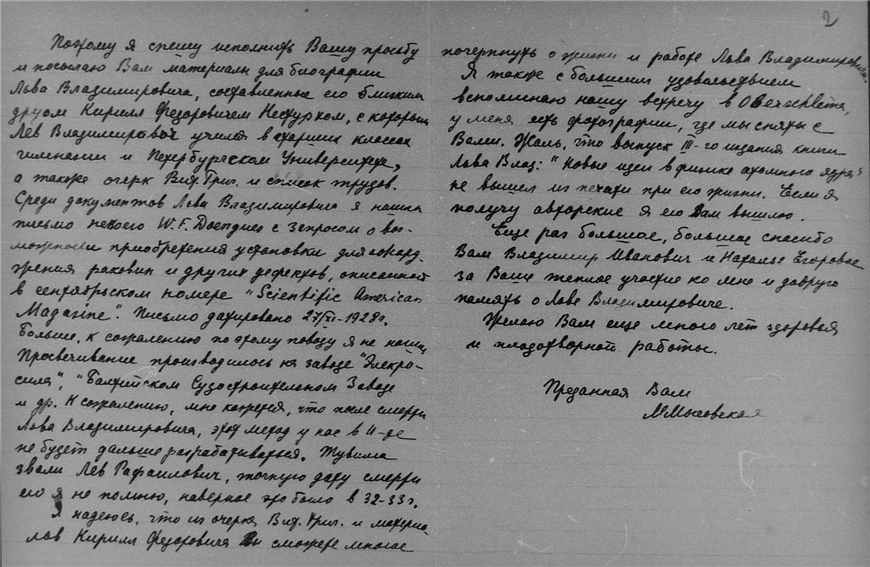 Поэтому я спешу исполнить Вашу просьбу
и посылаю Вам материалы для биографии
Льва Владимировича, составленные его близким
другом Кириллом Федоровичем Нестурхом, с которым
Лев Владимирович учился в старших классах
гимназии и Петербургском Университете,
а также очерк Вит. Григ. и список трудов.
Среди документов Льва Владимировича я нашла
письмо некоего W. F. с запросом о воз-
можности приобретения установки для обнару-
жения раковин и других дефектов, описанной
в сентябрьском номере "Scientific American
Magazine". Письмо датировано 27/XI-1928г.
Больше, к сожалению по этому поводу я не нашла
Просвечивание производилось на заводе "Электро-
сила", "Балтийском Судостроительном Заводе
и др. К сожалению, мне кажется, что после смерти
Льва Владимировича, этот метод у нас в И-те
не будет дальше разрабатываться. Тувима
звали Лев Рафаилович, точную дату смерти
его я не помню, наверное это было в 32-33г.
Я надеюсь, что из очерка Вит. Григ. и материа-
лов Кирилла Федоровича Вы сможете многое
2
почерпнуть о жизни и работе Льва Владимировича.
Я также с большим удовольствием
вспоминаю нашу встречу в
у меня есть фотографии, где мы сняты с
Вами. Жаль, что выпуск III-го издания книги
Льва Влад: "Новые идеи в физике атомного ядра"
не вышел из печати при его жизни. Если я
получу авторские я его Вам вышлю.
Еще раз большое, большое спасибо
Вам Владимир Иванович и Наталье Егоровне
за Ваше теплое участие ко мне и добрую
память о Льве Владимировиче.
Желаю Вам еще много лет здоровья
и плодотворной работы.
Преданная Вам
М Мысовская